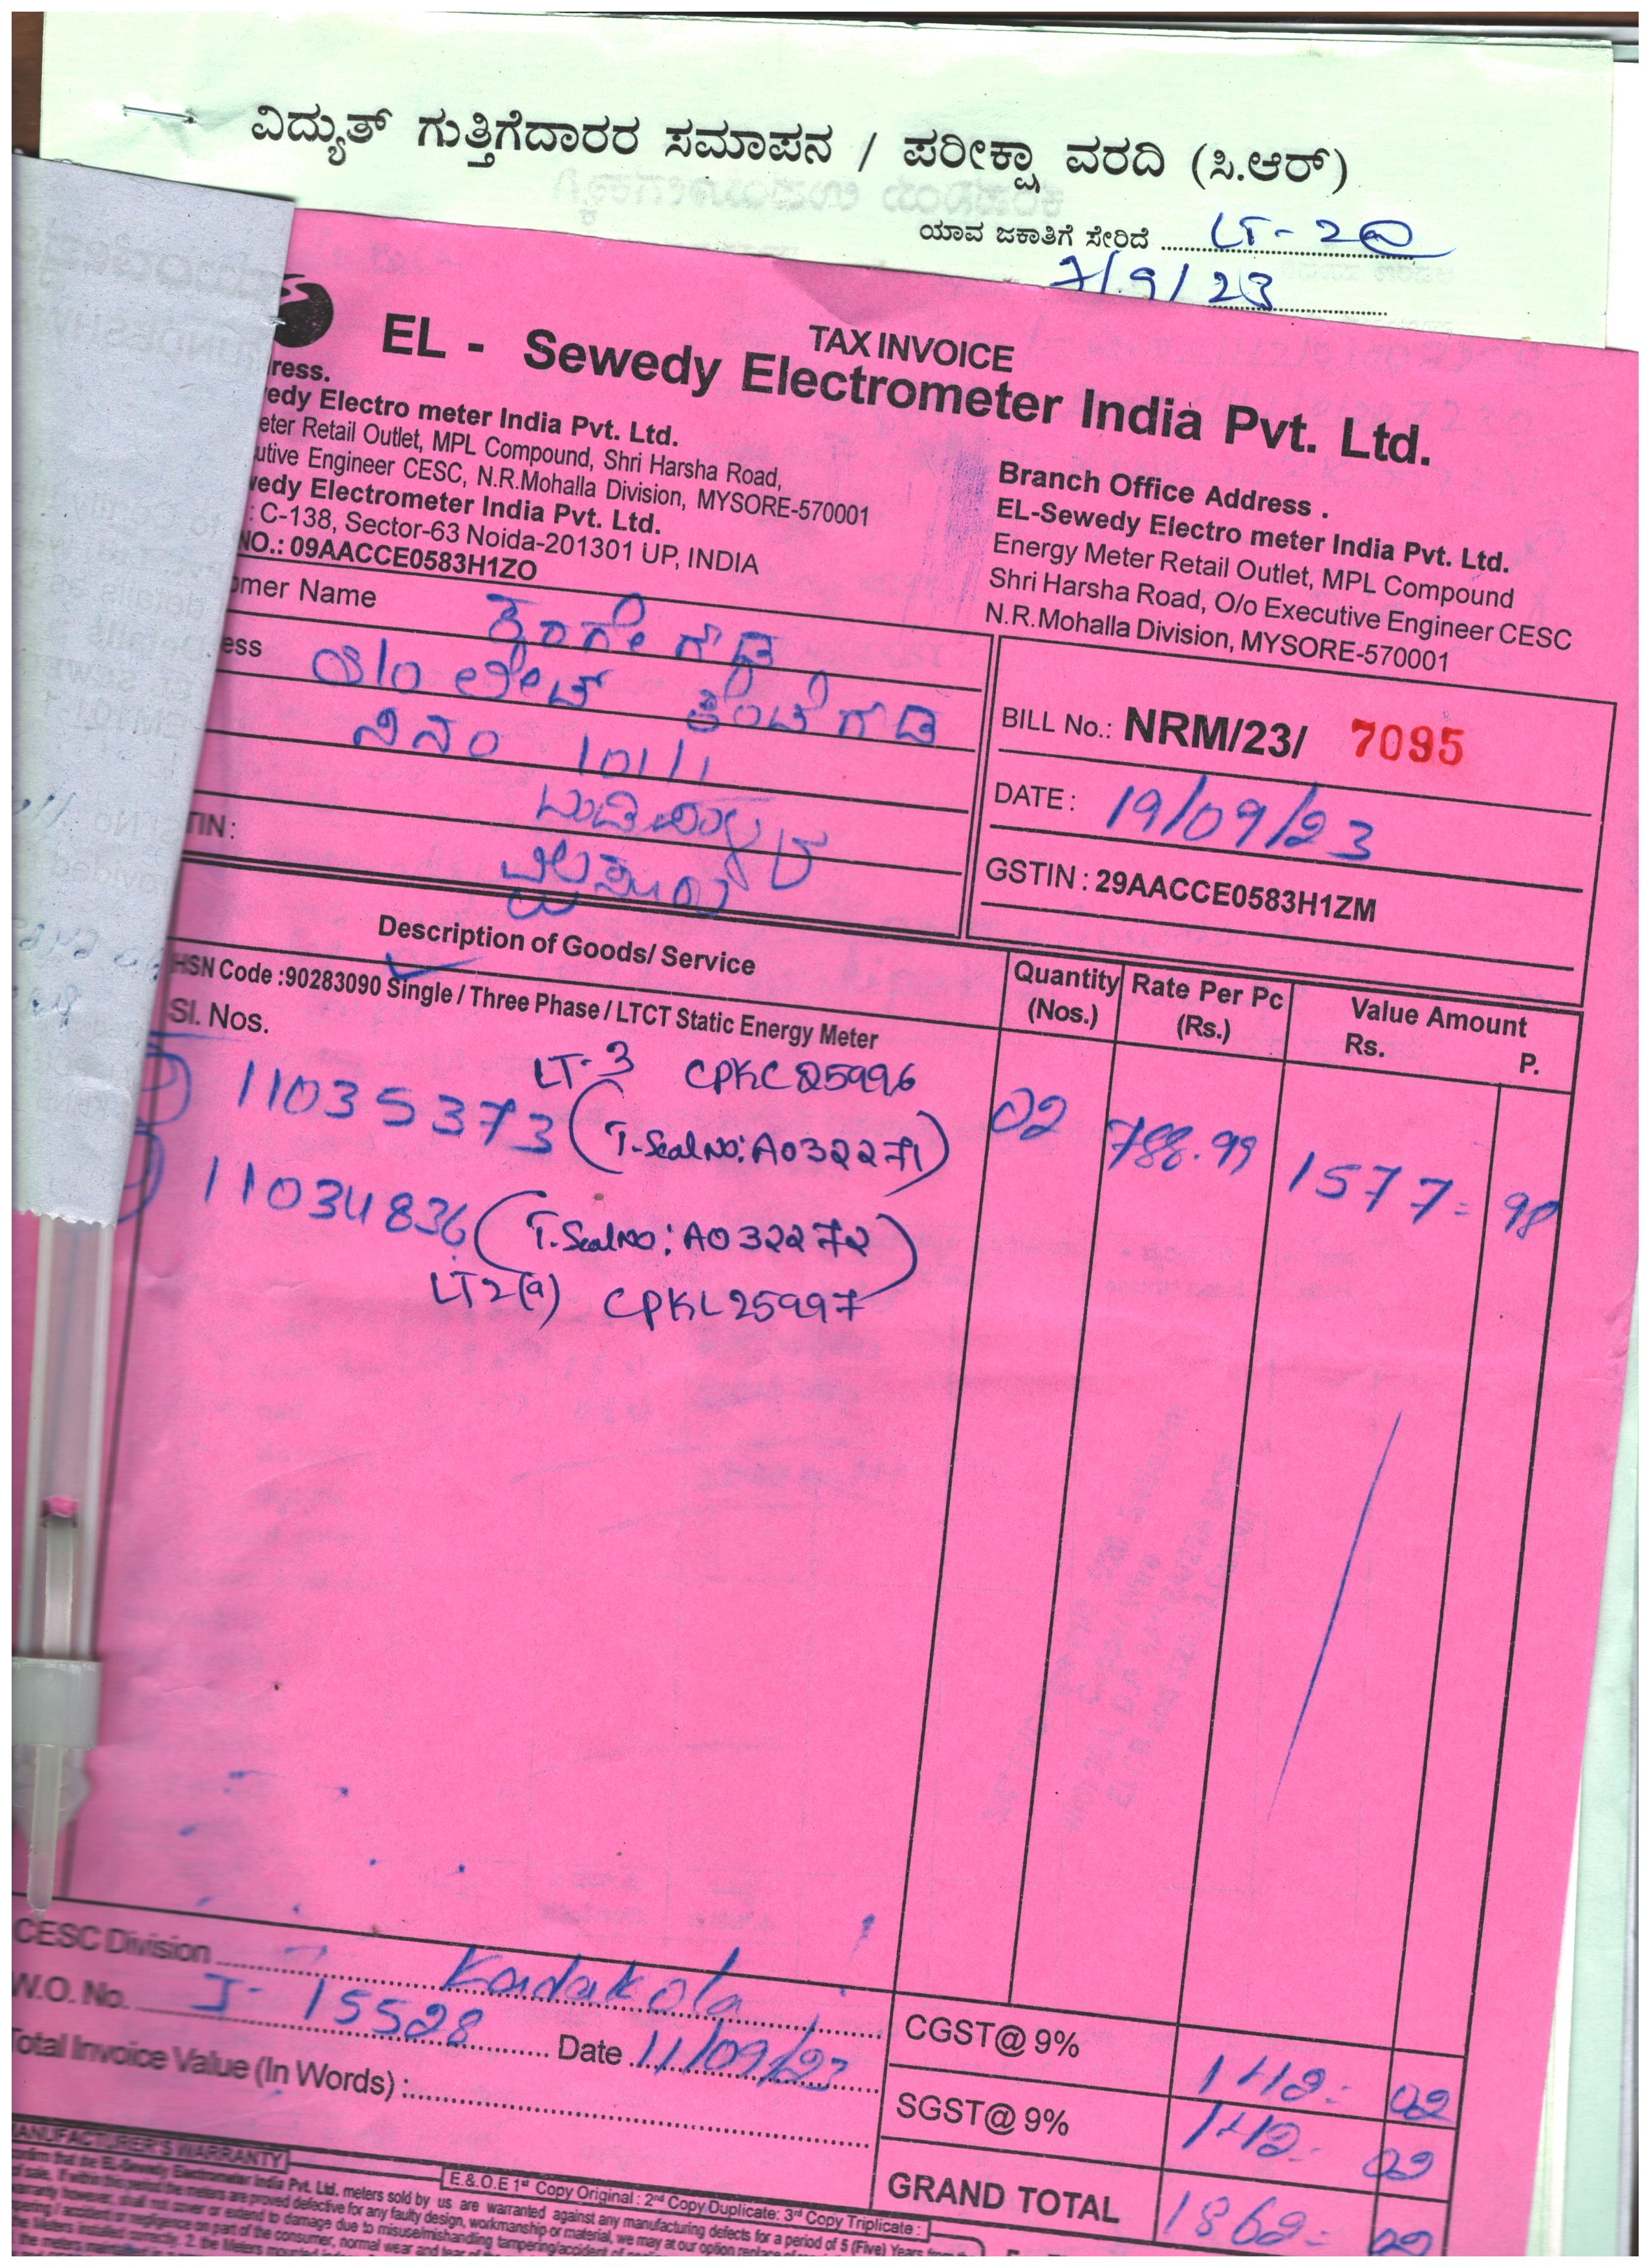 ವಿದ್ಯುತ್ ಗುತ್ತಿಗೆದಾರರ ಸಮಾಪನ / ಪರೀಕ್ಷಾ ವರದಿ (ಸಿ.ಆರ್)
ಯಾವ ಜಕಾತಿಗೆ ಸೇರಿದೆ LT-2
7/9/23
TAX INVOICE
EL - Sewedy Electrometer India Pvt. Ltd.
ress.
edy Electro meter India Pvt. Ltd.
eter Retail Outlet, MPL Compound, Shri Harsha Road,
utive Engineer CESC, N.R.Mohalla Division, MYSORE-570001
edy Electrometer India Pvt. Ltd.
: C-138, Sector-63 Noida-201301 UP, INDIA
NO.: 09AACCE0583H1ZO
Branch Office Address .
EL-Sewedy Electro meter India Pvt. Ltd.
Energy Meter Retail Outlet, MPL Compound
Shri Harsha Road, O/o Executive Engineer CESC
N.R.Mohalla Division, MYSORE-570001
omer Name
ess
101/1
TIN:
BILL No.: NRM/23/ 7095
DATE: 19/09/23
GSTIN : 29AACCE0583H1ZM
Description of Goods/ Service
Quantity (Nos.)
Rate Per Pc (Rs.)
Value Amount
Rs. P.
HSN Code :90283090 Single / Three Phase / LTCT Static Energy Meter
Sl. Nos.
LT-3 CPKC25996
11035373 (T-Seal No: A032271) 02 788.99 1577= 98
11034836 (T.Seal No: A032272)
LT2(a) CPKL25997
CESC Division Kadakola
W.O. No. I-15528 Date 11/09/23
Total Invoice Value (In Words) :
CGST@ 9% 142= 02
SGST@ 9% 142= 02
GRAND TOTAL 1862= 02
MANUFACTURER'S WARRANTY
E.&.O.E 1st Copy Original : 2nd Copy Duplicate: 3rd Copy Triplicate :
onfirm that the EL-Sewedy Electrometer India Pvt. Ltd. meters sold by us are warranted against any manufacturing defects for a period of 5 (Five) Years
of sale. If within this period the meters are proved defective for any faulty design, workmanship or material, we may at our option replace
warranty however, shall not cover or extend to damage due to misuse/mishandling tampering/accident